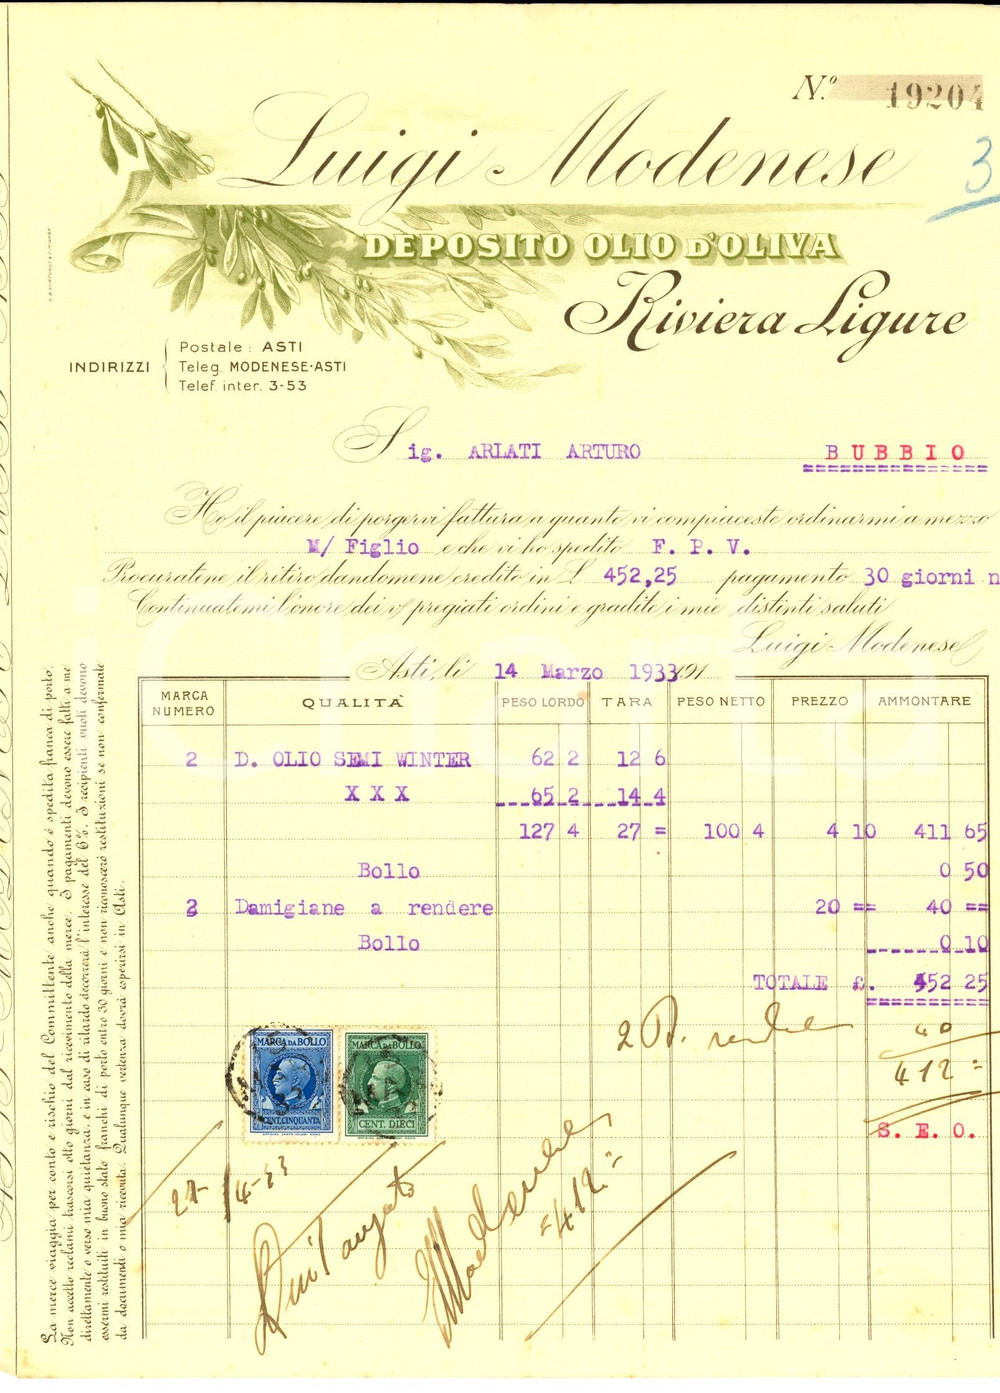 N.º 19204
3
Luigi Modenese
DEPOSITO OLIO D'OLIVA
Riviera Ligure
INDIRIZZI
Postale: ASTI
Teleg. MODENESE-ASTI
Telef. inter. 3-53
Sig. ARLATI ARTURO BUBBIO
Ho il piacere di porgervi fattura a quanto vi compiaceste ordinarmi a mezzo
M/ Figlio e che vi ho spedito F. P. V.
Procuratene il ritiro dandomene credito in L 452,25 pagamento 30 giorni n
Continuatemi l'onore dei V/ pregiati ordini e gradite i miei distinti saluti
Luigi Modenese
Asti, li 14 Marzo 1933 191
MARCA NUMERO QUALITÀ PESO LORDO TARA PESO NETTO PREZZO AMMONTARE
2 D. OLIO SEMI WINTER 62 2 12 6
X X X 65 2 14 4
127 4 27 = 100 4 4 10 411 65
Bollo 0 50
2 Damigiane a rendere 20 == 40 ==
Bollo 0 10
TOTALE £. 452 25
2 D. rende 40
412 =
S. E. O.
MARCA DA BOLLO MARCA DA BOLLO
CENT. CINQUANTA CENT. DIECI
/4-33
Quitanzato
Modenese
=412=
La merce viaggia per conto e rischio del Committente anche quando è spedita franca di porto.
Non accetto reclami trascorsi otto giorni dal ricevimento della merce. I pagamenti devono essere fatti a me
direttamente o verso mia quietanza, e in caso di ritardo decorrerà l'interesse del 6%. I recipienti vuoti devono
essermi restituiti in buono stato franchi di porto entro 30 giorni e non riconoscerò restituzioni se non confermate
da documenti o mia ricevuta. Qualunque vertenza dovrà esperirsi in Asti.